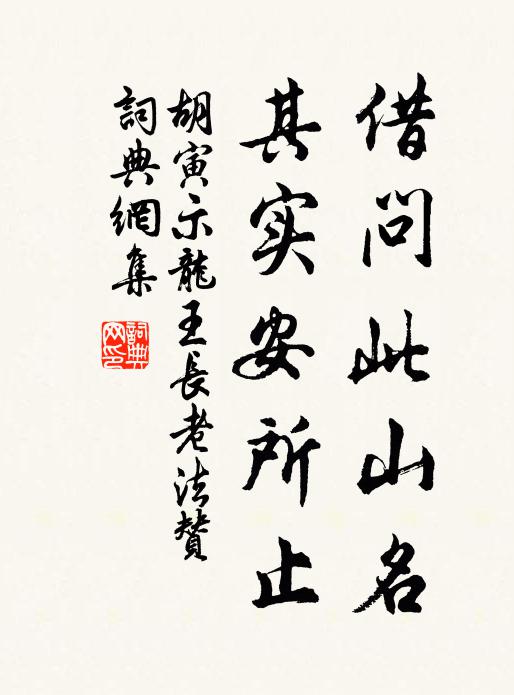 借问此山名
其实安所止
胡寅示龍王長老法贊
詞典網集
詞典網印